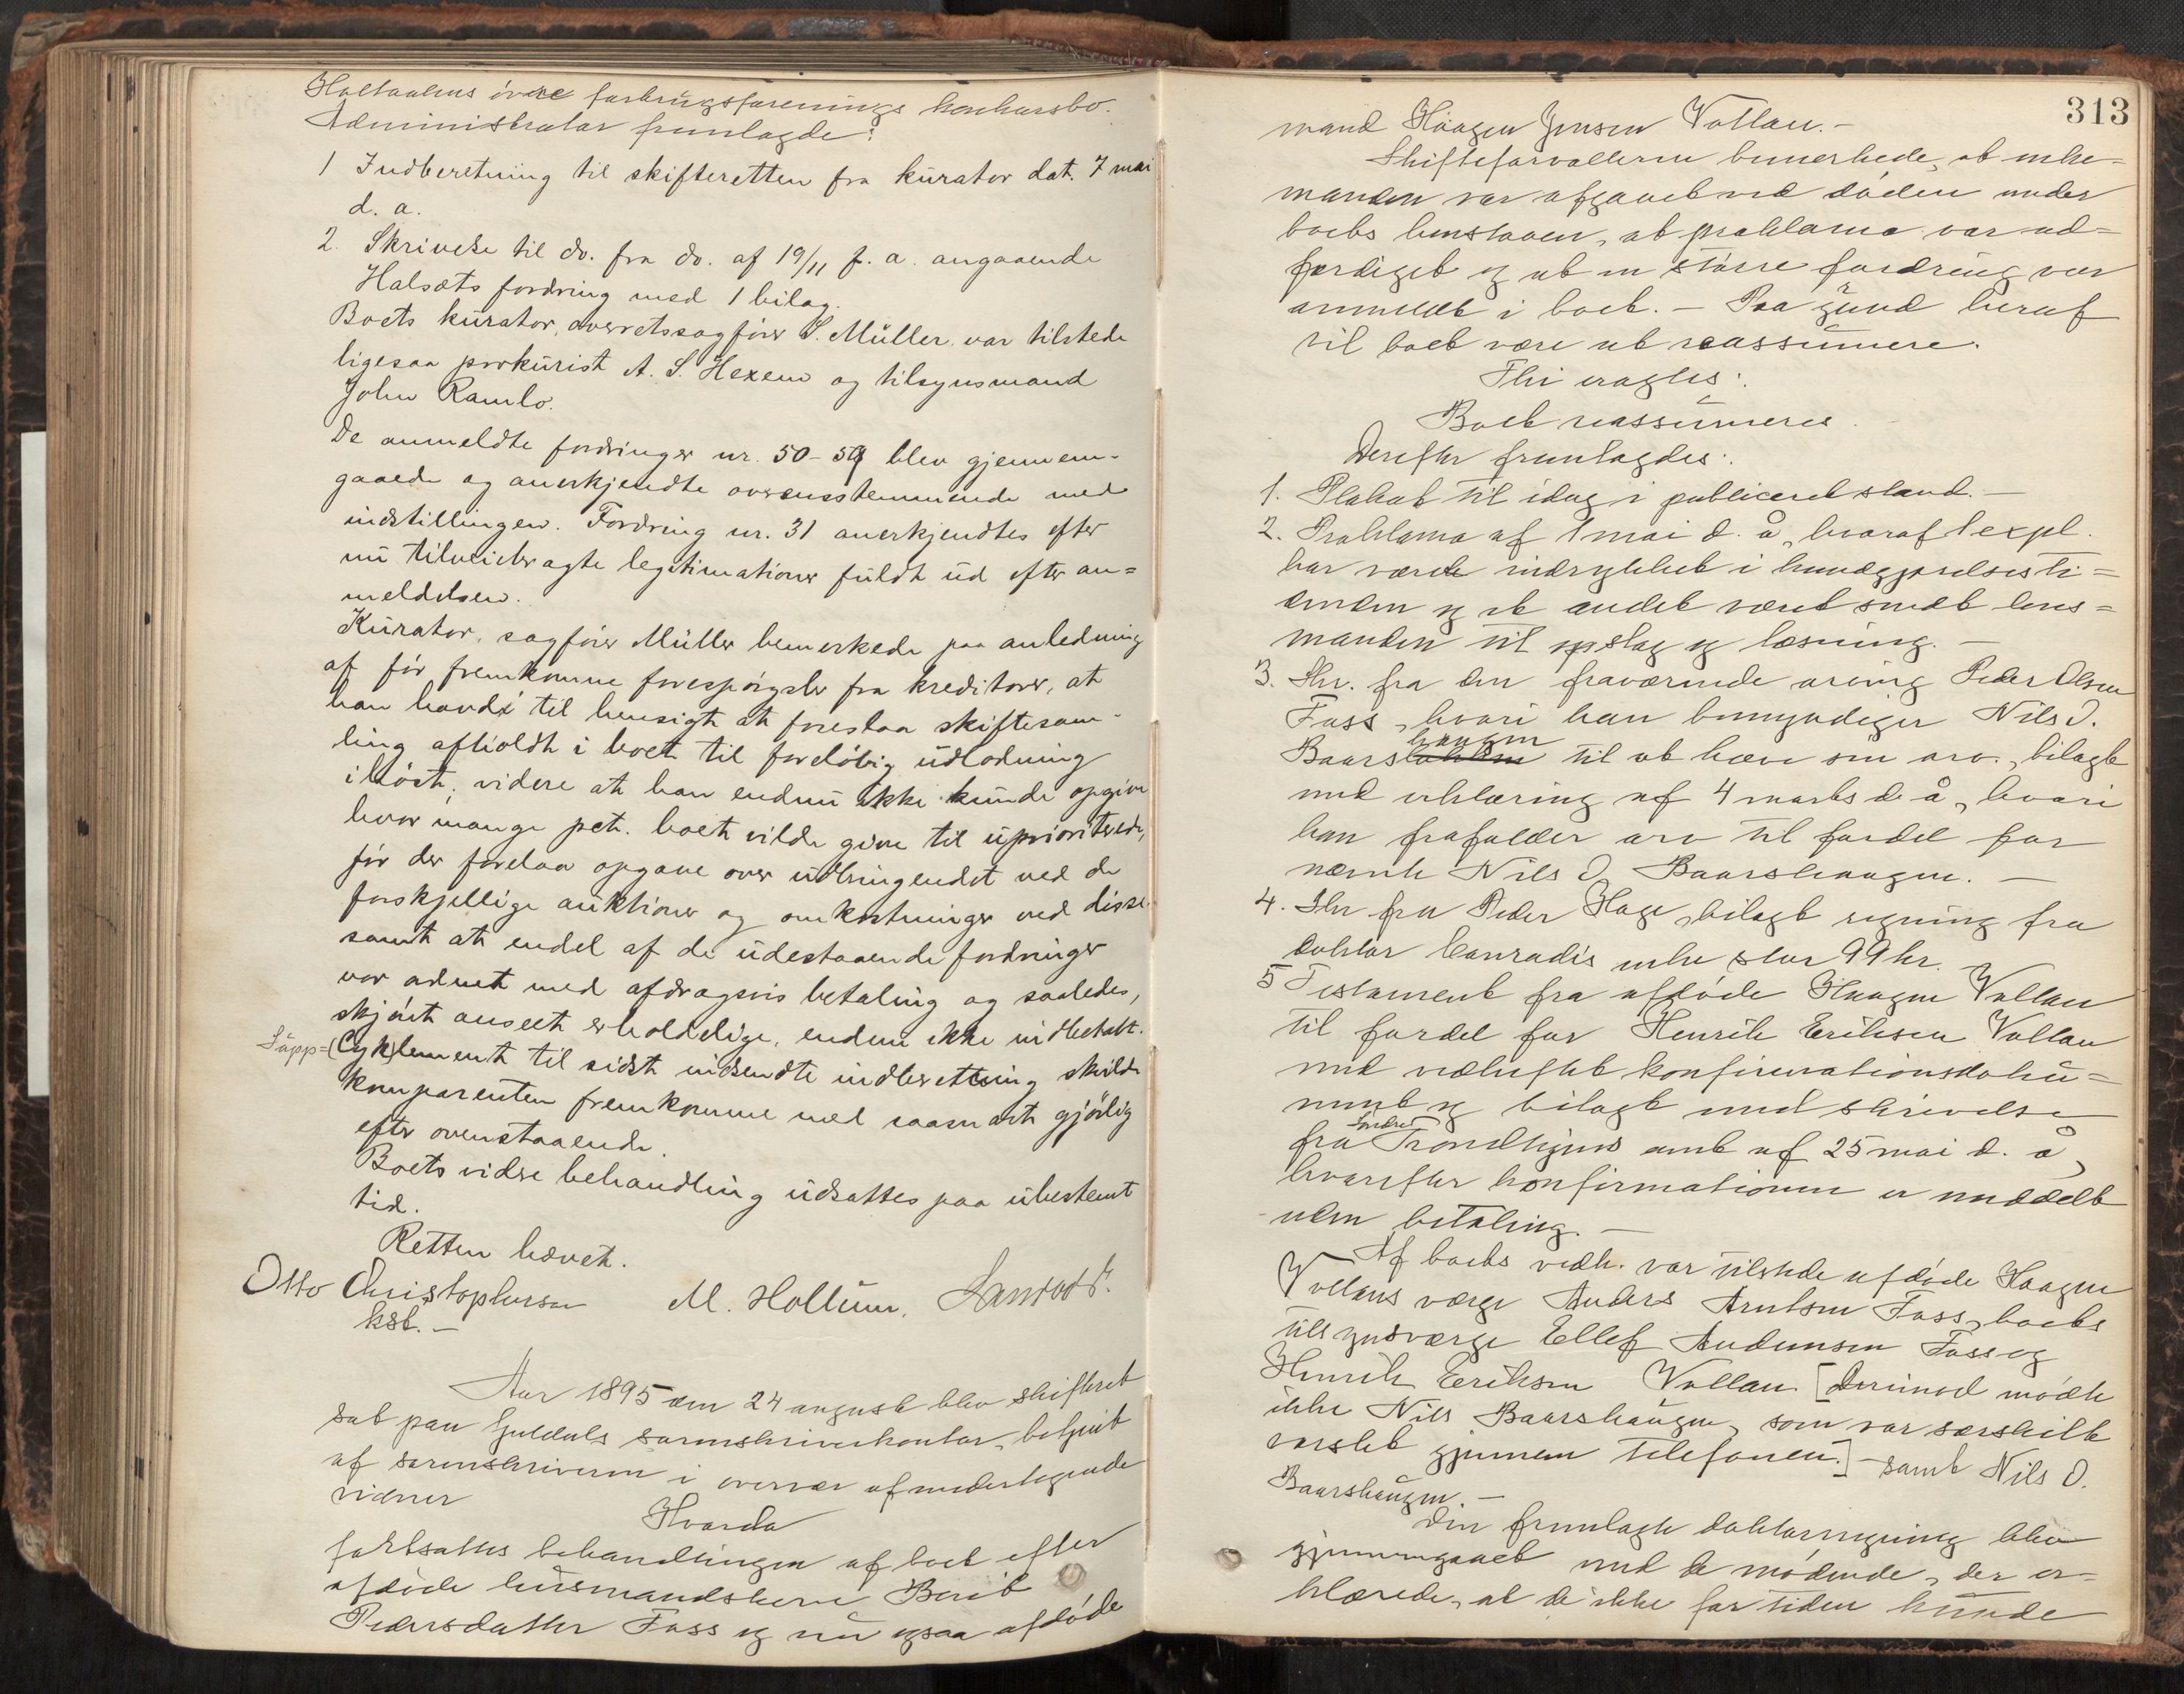 Holtaalens øvre forbrugsforenings konkursbo.
Administrator fremlagde:
1 Indberetning til skifteretten fra kurator dat. 7 mai
d. a.
2. Skrivelse til do. fra do. af 19/11 f. a. angaaende
Halsets fordring med 1 bilag.
Boets kurator, overretssagfører S. Müller, var tilstede
ligesaa prokurist A. S. Hexem og tilsynsmand
John Ramlo.
De anmeldte fordringer nr. 50-59 blev gjennem-
gaaede og anerkjendte overensstemmende med
indstillingen. Fordring nr. 31 anerkjendtes efter
nu tilveiebragte legitimationer fuldt ud efter an=
meldelsen.
Kurator, sagfører Müller bemerkede paa anledning
af før fremkomne forespørgsler fra kreditorer, at
han havde til hensigt at foreslaa skiftesam-
ling afholdt i boet til foreløbig udlodning
i høst, videre at han endnu ikke kunde opgive
hvor mange pct. boet vilde give til uprioriterede,
før der forelaa opgave over udbringendet ved de
forskjellige auktioner og omkostninger ved disse
samt at endel af de udestaaende fordringer
var ordnet med afdragsvis betaling og saaledes,
skjønt anseet erholdelige, endnu ikke indbetalt.
Supp=(Cyk)lement til sidst indsendte indberetning skulde
komparenten fremkomme med saasnart gjørlig
efter ovenstaaende.
Boets videre behandling udsattes paa ubestemt
tid.
Retten hævet.
Otto Christophersen M. Hollum.
kst.-
Aar 1895 den 24 august blev skifteret
sat paa Guldals sorenskriverkontor, betjent
af sorenskriveren i overvær af undertegnede
vidner
Hvorda
fortsattes behandlingen af boet efter
afdøde husmandskone Berit
Pedersdatter Foss og nu ogsaa afdøde
313
mand Haagen Jensen Vollan.-
Skifteforvalteren bemerkede, at enke=
manden var afgaaet ved døden under
boets henstaaen, at proklama var ud=
færdiget og at en større fordring var
anmeldt i boet. - Paa grund heraf
vil boet være at reassumere.
Thi eragtes:
Boet reassumeres.
Derefter fremlagdes:
1. Plakat til idag i publiceret stand.-
2. Proklama af 1 mai d. å, hvoraf 1 expl.
har været indrykket i kundgjørelsesti=
denden og et andet været sendt lens=
manden til opslag og læsning.-
3. Skr. fra den fraværende arving Peder Olsen
Foss, hvori han bemyndiger Nils O.
haugen
Baars til at hæve sin arv, bilagt
med erklæring af 4 marts d. å, hvori
han frafalder arv til fordel for
nævnte Nils O. Baarshaugen.-
4. Skr fra Peder Hage, bilagt regning fra
doktor Conradis enke stor 99 kr.
5 Testament fra afdøde Haagen Vollan
til fordel for Henrik Eriksen Vollan
med vedheftet konfirmationsdoku=
ment og bilagt med skrivelse
søndre
fra Trondhjems amt af 25 mai d. å,
hvorefter konfirmationen er meddelt
uden betaling.-
Af boets vedk. var tilstede afdøde Haagen
Vollans værge Anders Arntsen Foss, boets
tilsynsværge Ellef Audunsen Foss og
Henrik Eriksen Vollan [Derimod mødte
ikke Nils Baarshaugen, som var særskilt
varslet gjennem telefonen.] - samt Nils O.
Baarshaugen.-
Den fremlagte doktorregning blev
gjennemgaaet med de mødende, der er=
klærede, at de ikke for tiden kunde